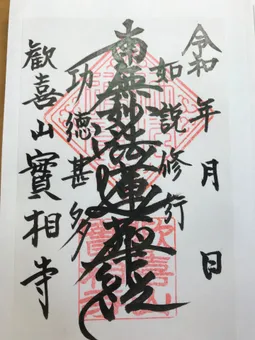 令和 年 月 日
如説修行
南無妙法蓮華経
功徳甚多
歓喜山寳相寺